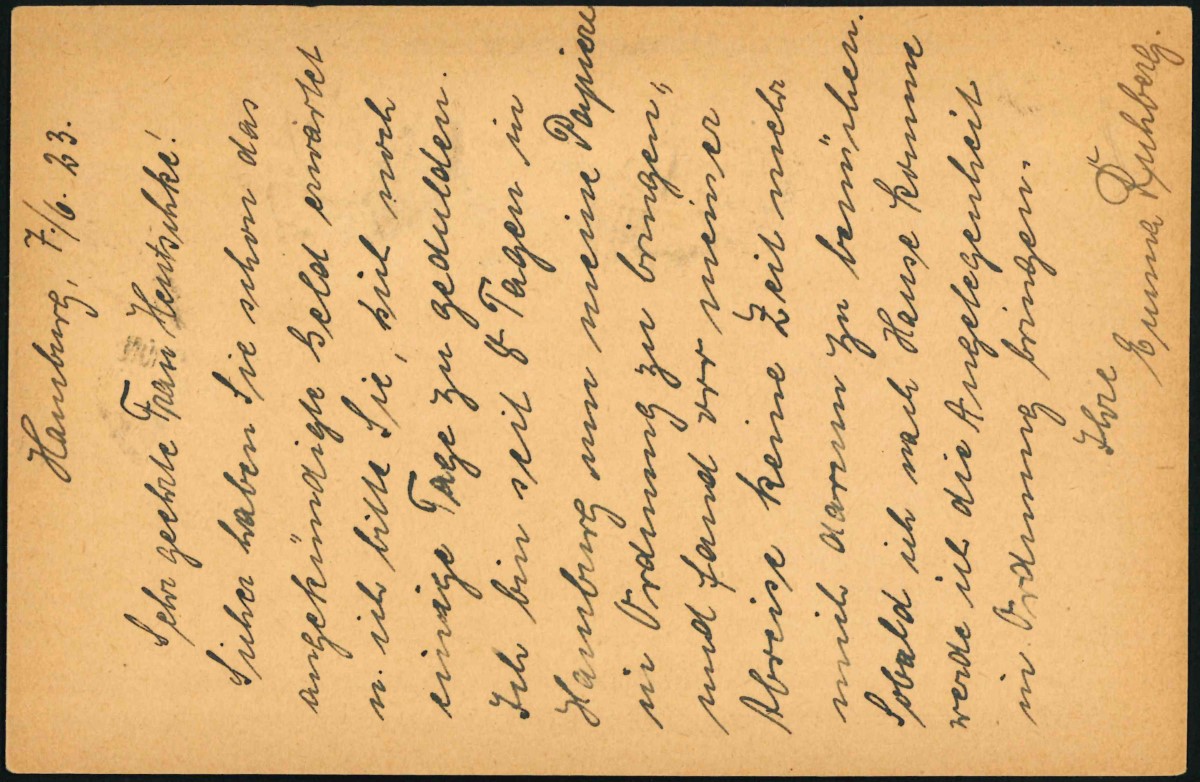 Hamburg, 7./6. 23.
Sehr geehrte Frau Hentschke!
Sicher haben Sie schon das
angekündigte Geld erwartet
u. ich bitte Sie, sich noch
einige Tage zu gedulden.
Ich bin seit 8 Tagen in
Hamburg um meine Papiere
in Ordnung zu bringen,
und fand vor meiner
Abreise keine Zeit mehr
mich darum zu bemühen.
Sobald ich nach Hause komme
werde ich die Angelegenheit
in Ordnung bringen.
Ihre
Emma Ruhberg.